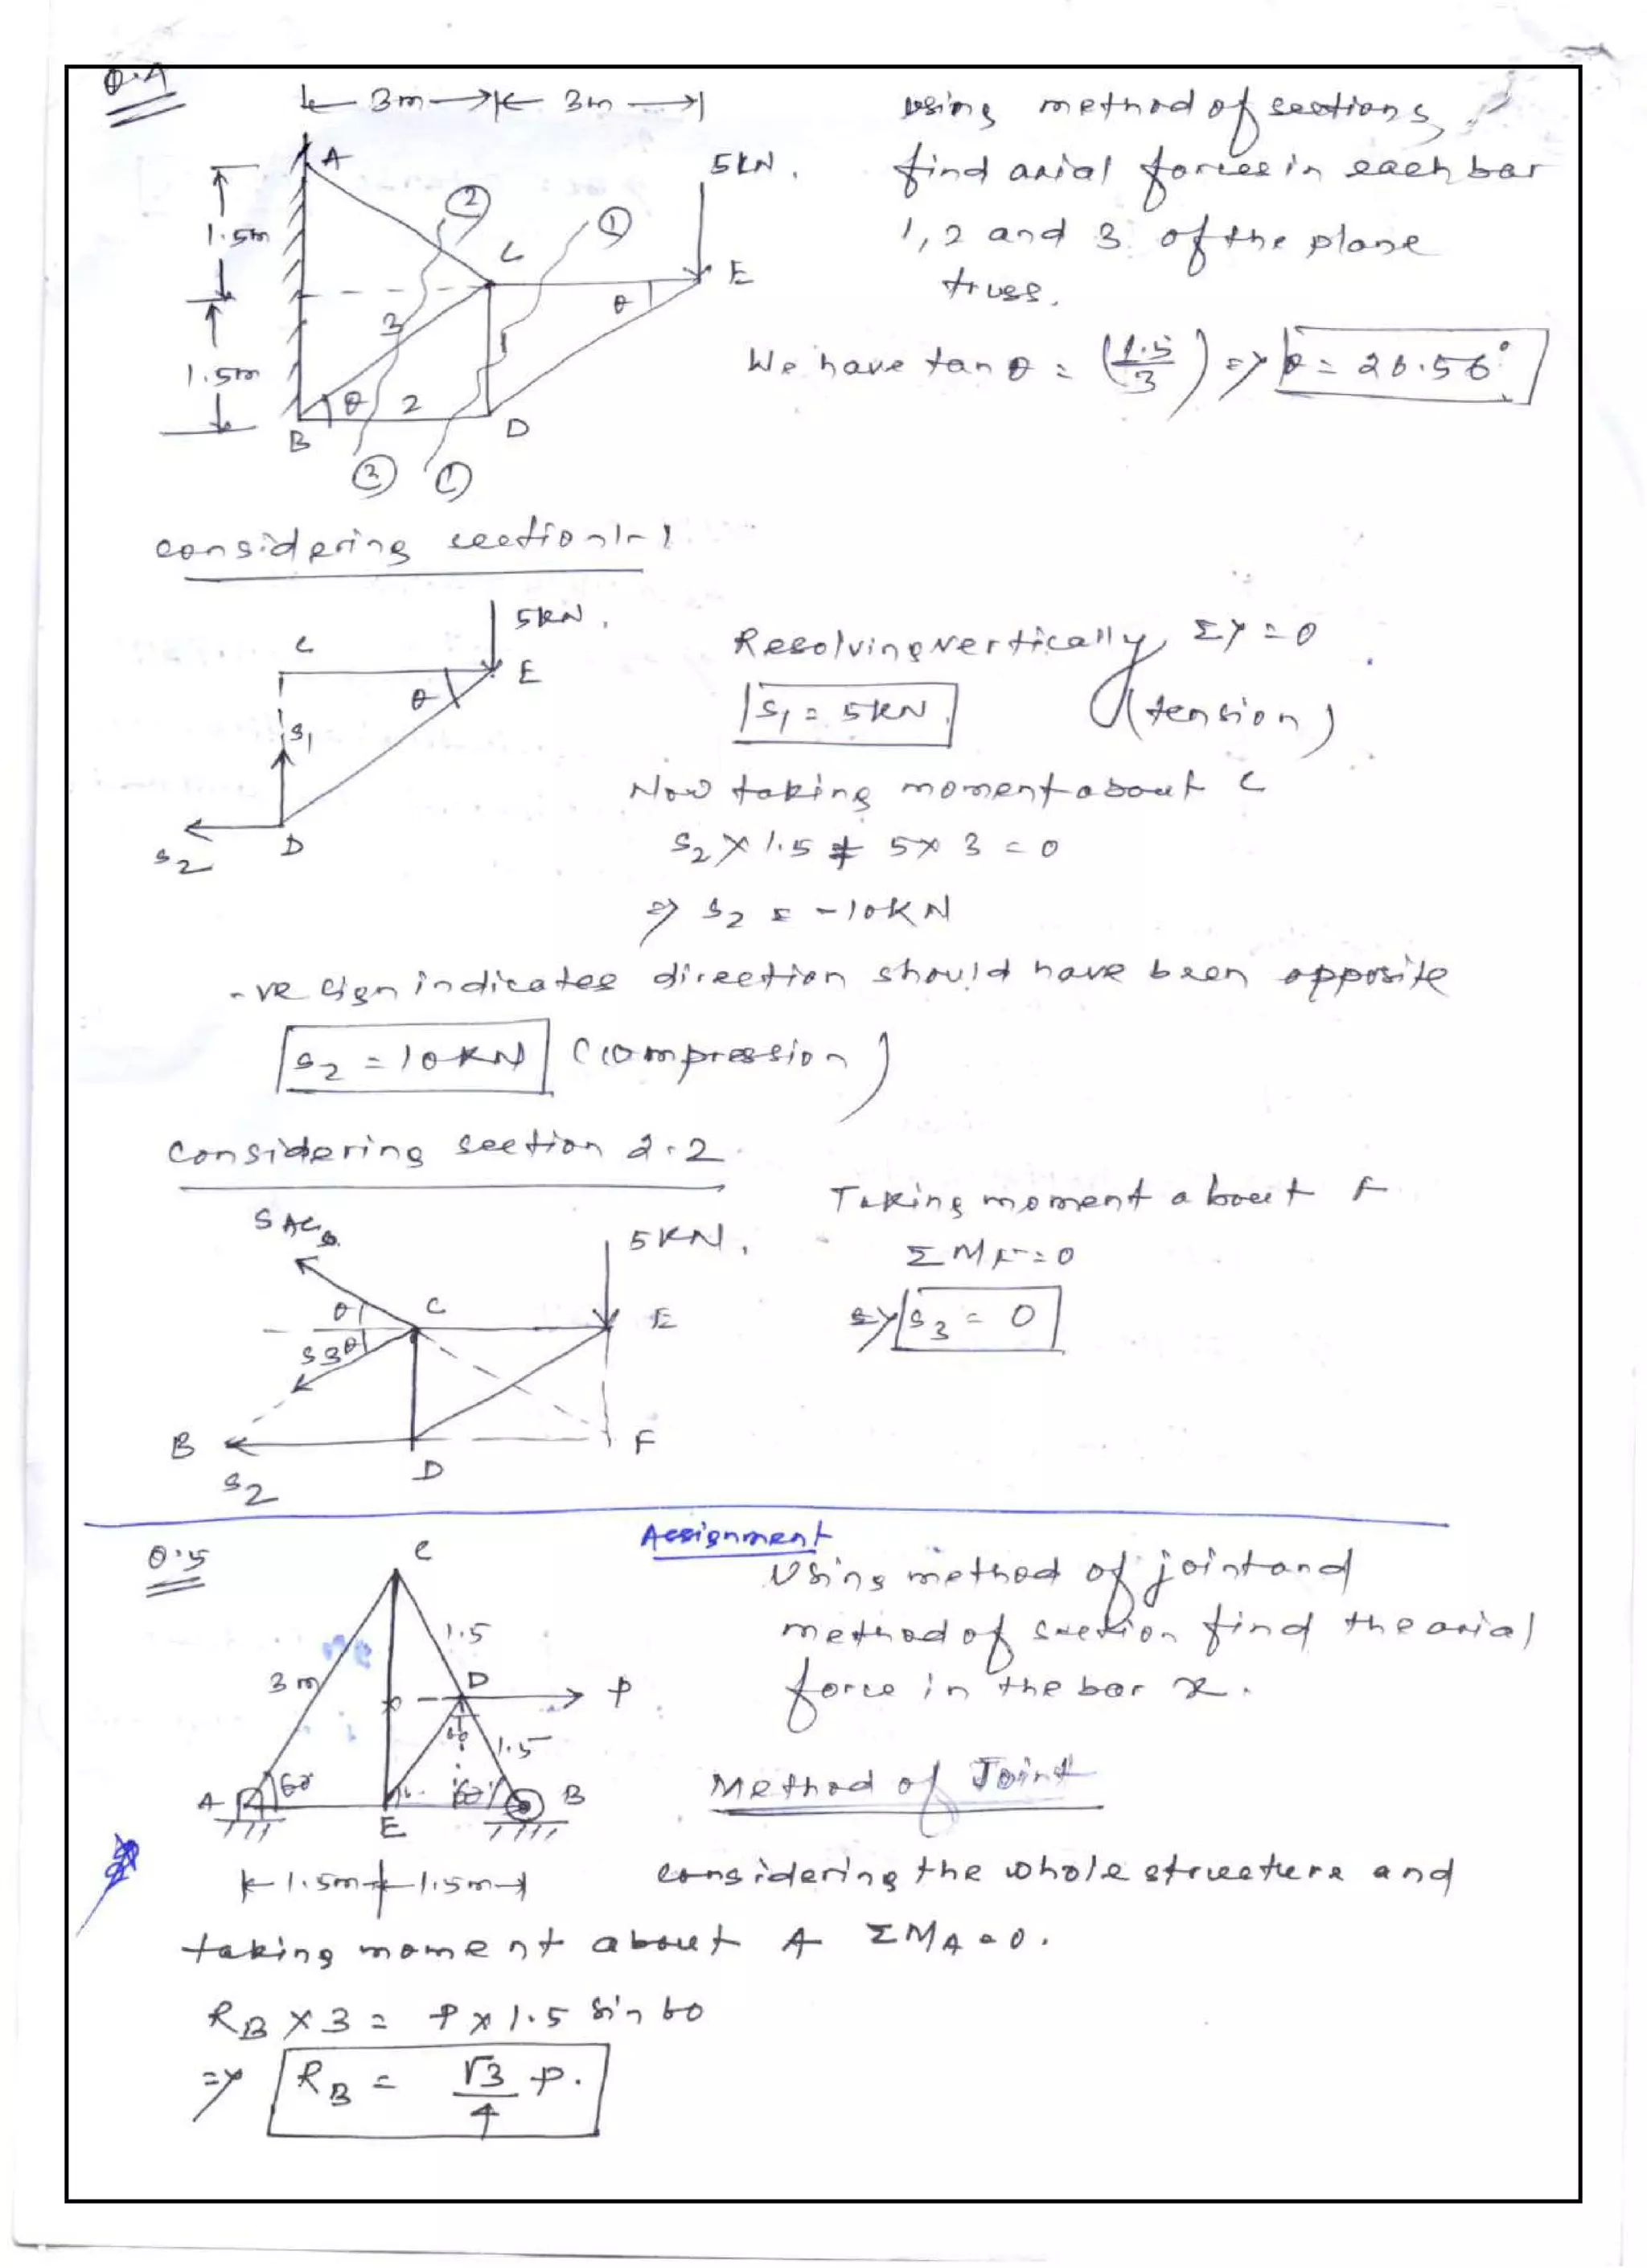 Q.4
3m 3m
using method of sections,
find axial forces in each bar
1, 2 and 3 of the plane
truss.
A
5kN.
1.5m
2
1
C
E
θ
3
1
1.5m
θ
2
B
D
2
1
We have tan θ = (1.5/3) => θ = 26.56°
considering section 1-1
5kN.
C
E
θ
S1
D
S2
Resolving vertically, ΣY = 0
S1 = 5kN. (tension)
Now taking moment about C
S2 × 1.5 + 5 × 3 = 0
=> S2 = -10KN
-ve sign indicates direction should have been opposite
S2 = 10KN (compression)
Considering section 2-2
SAC
5KN.
θ
C
E
S3 θ
B
F
S2
D
Taking moment about F
ΣMF = 0
=> S3 = 0
Assignment
Q.5
C
1.5
3m
D
P
x
60
1.5
A
60°
60°
B
E
1.5m 1.5m
Using method of joint and
method of section find the axial
force in the bar x.
Method of Joint
considering the whole structure and
taking moment about A ΣMA = 0.
RB × 3 = P × 1.5 sin 60
=> RB = √3/4 P.